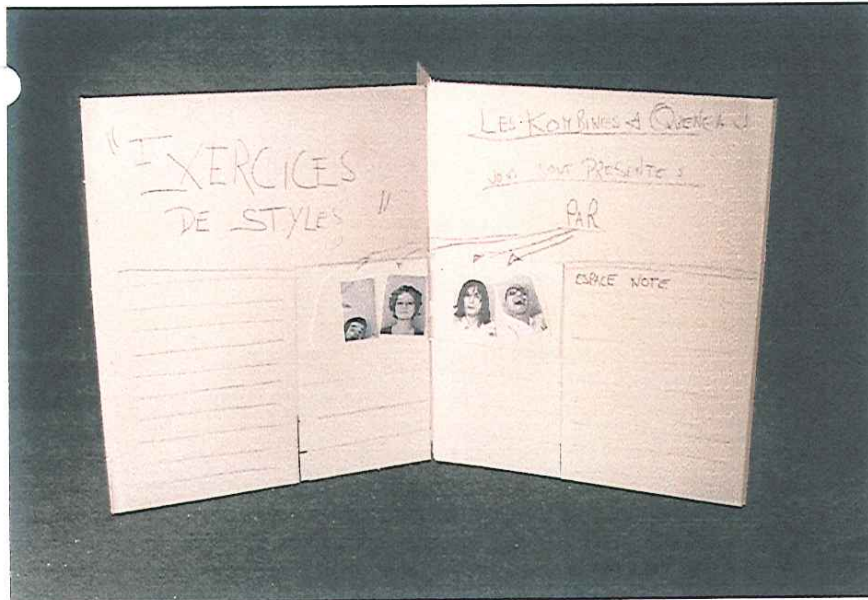 " EXERCICES
DE STYLES "
LES KOMBINES A QUENEAU
VOUS SONT PRESENTES
PAR
ESPACE NOTE